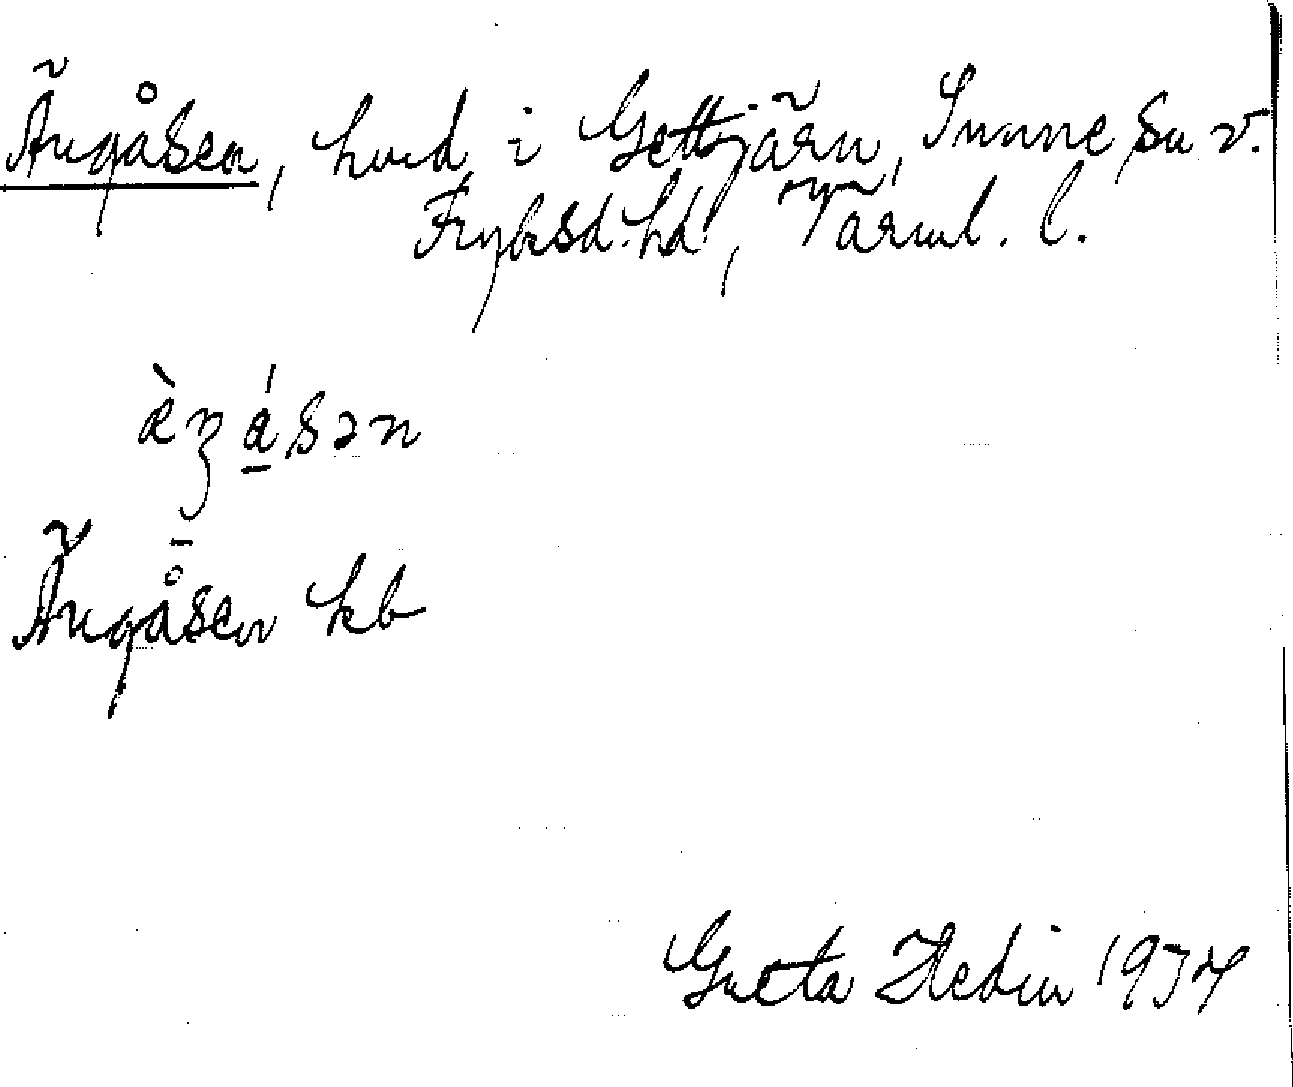 Ängåsen, hvd i Gettjärn, Sunne sn v.
Fryksd. hd, Värml. l.
æ̀ŋåśən
Ängåsen kb
Greta Hedin 1937